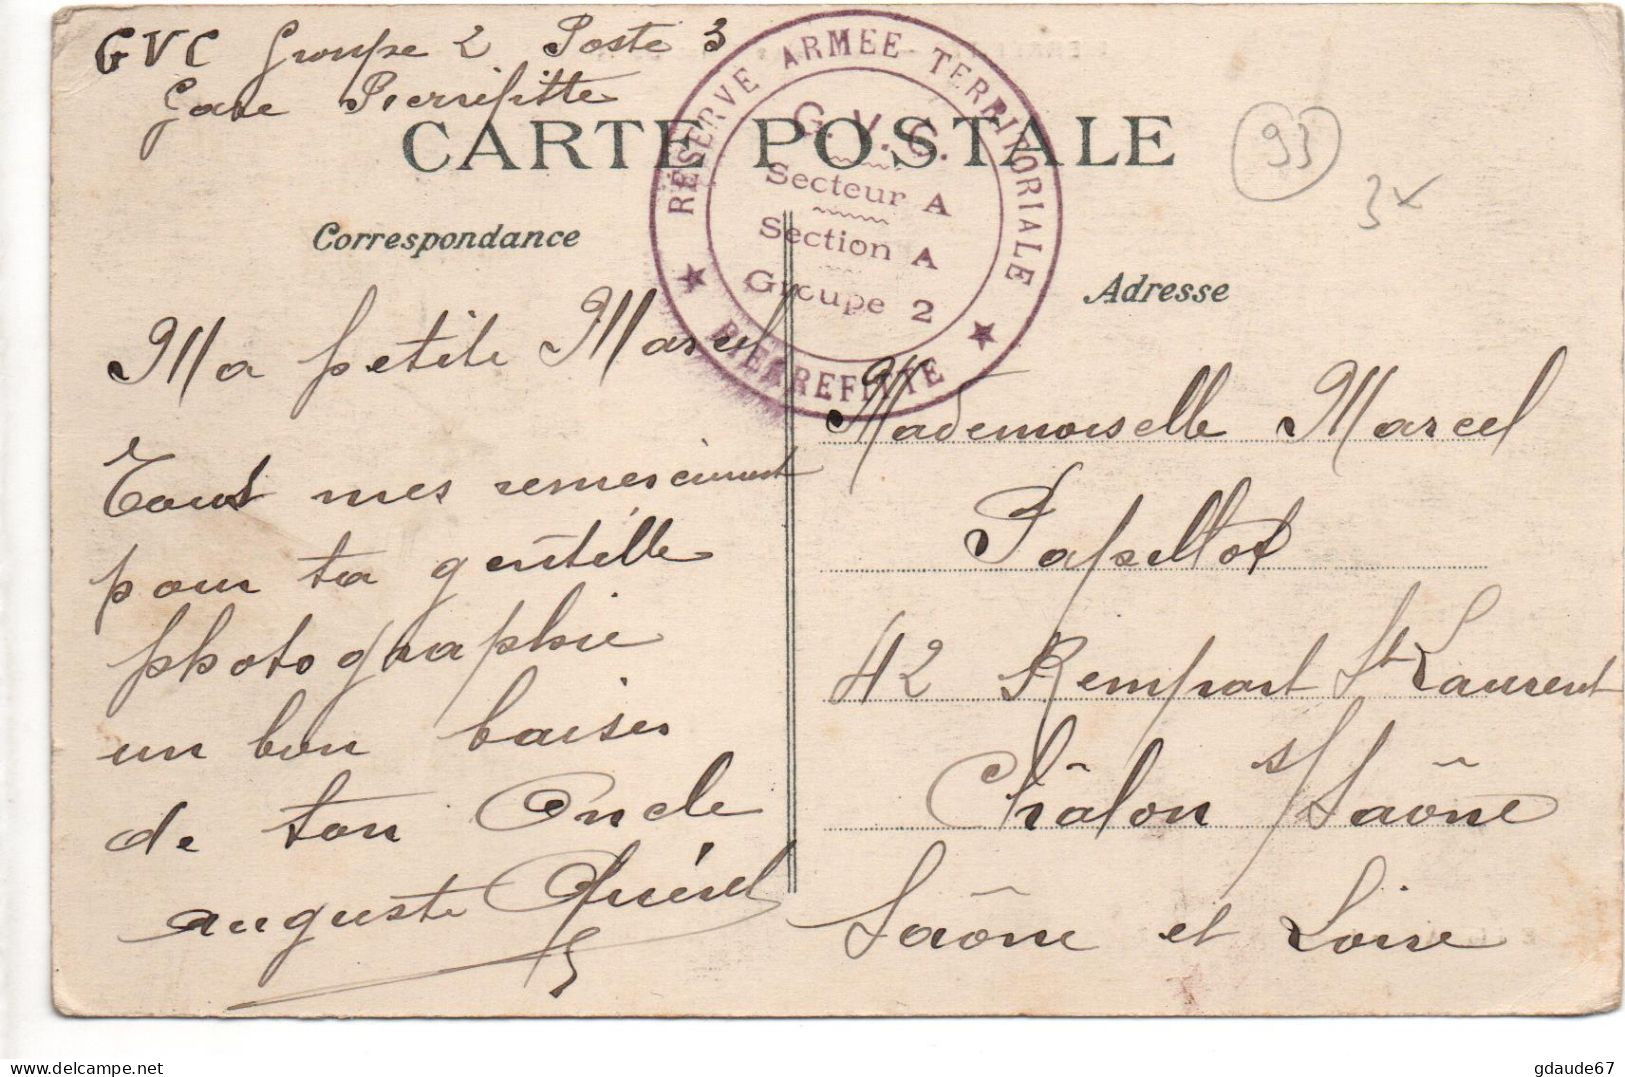 GVC Groupe 2 Poste 3
Gare Pierrefitte
CARTE POSTALE
RÉSERVE ARMÉE TERRITORIALE
G.V.C.
Secteur A
Section A
Groupe 2
★ PIERREFITTE ★
93
3x
Correspondance
Ma petite Marcel
Tous mes remerciement
pour ta gentille
photographie
un bon baiser
de ton Oncle
auguste
Adresse
Mademoiselle Marcel
Papillot
42 Rempart St Laurent
Châlon s/ Saône
Saône et Loire
gdaude67